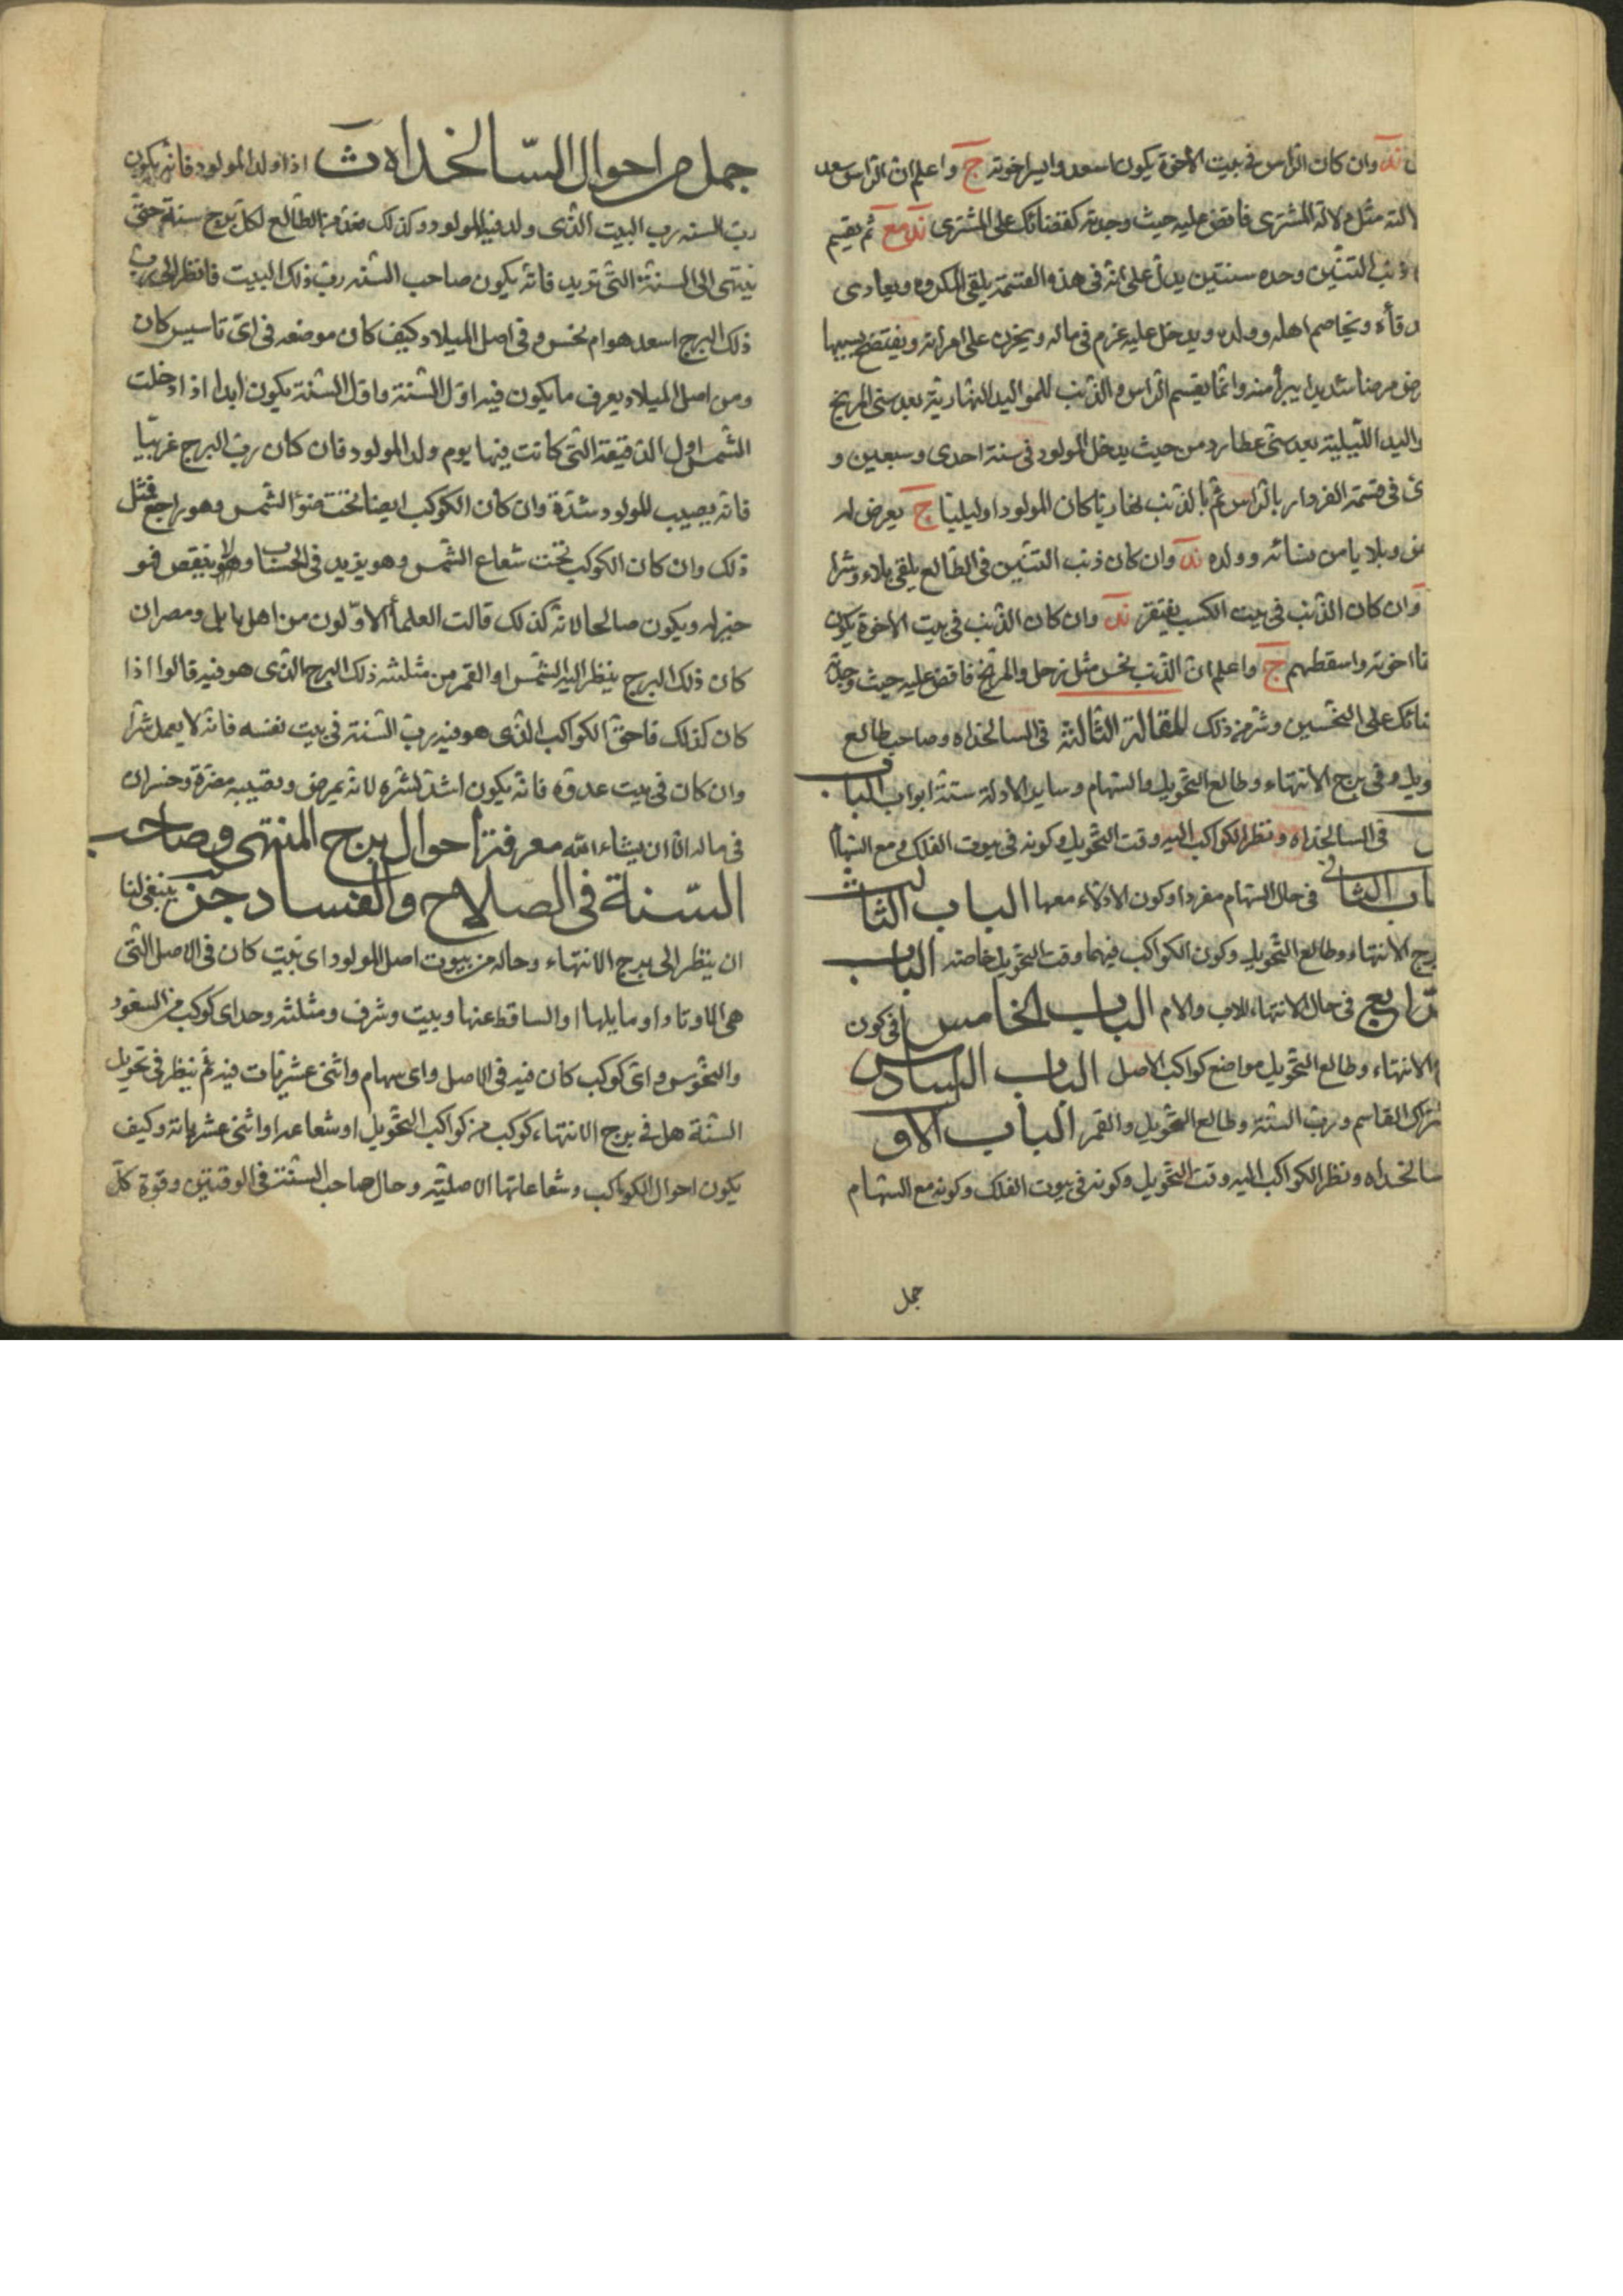 ند وان كان الراس فى بيت الاخوة يكون اسعد وايسر اخوته ج واعلم ان الراس سعد
مثل دلالة المشترى فاقض عليه حيث وجدته كقضائك على المشترى ند مع ثم يقسم
ذنب التنين وحده سنتين يدل على انه فى هذه القسمة يلقى المكروه ويعادى
ويخاصم اهله وولده ويدخل عليه غرم فى ماله ويحزن على امراته ويفتضح بسببها
مرضا شديدا يبرأ منه وانما يقسم الراس والذنب للمواليد النهارية بعد سنى المريخ
الليلية بعد سنى عطارد من حيث يدخل المولود فى سنة احدى وسبعين و
فى قسمة الفردار بالراس ثم بالذنب نهاريا كان المولود او ليليا ج يعرض له
وبلايا من نسائه وولده ند وان كان ذنب التنين فى الطالع يلقى بلاء وشرا
وان كان الذنب فى بيت الكسب يفتقر ند وان كان الذنب فى بيت الاخوة يكون
اخوته واسقطهم ج واعلم ان الذنب نحس مثل زحل والمريخ فاقض عليه حيث وجدته
على النحسين وشر من ذلك المقالة الثالثة فى السالخداه وصاحب طالع
وفى برج الانتهاء وطالع التحويل والسهام وساير الادلة ستة ابواب الباب
فى السالخداه ونظر الكواكب اليه وقت التحويل وكونه فى بيوت الفلك ومع السهام
الثانى فى حال السهام مفردا وكون الادلاء معها الباب الثالث
برج الانتهاء وطالع التحويل وكون الكواكب فيهما وقت التحويل خاصته الباب
الرابع فى حال الانتهاء للاب والام الباب الخامس فى كون
الانتهاء وطالع التحويل مواضع كواكب الاصل الباب السادس
القاسم ورب السنة وطالع التحويل والقمر الباب الاول
سالخداه ونظر الكواكب اليه وقت التحويل وكونه فى بيوت الفلك وكونه مع السهام
جمل
جمل من احوال السالخداه ث اذا ولد المولود فانه يكون
رب السنه رب البيت الذى ولد فيه المولود وكذلك من الطالع لكل برج سنة حتى
ينتهى الى السنة التى تريد فانه يكون صاحب السنه رب ذلك البيت فانظر الى رب
ذلك البرج اسعد هو ام نحس وفى اصل الميلاد كيف كان موضعه فى اى تاسيس كان
ومن اصل الميلاد يعرف ما يكون فيه اول السنة واول السنة يكون ابدا اذا دخلت
الشمس اول الدقيقة التى كانت فيها يوم ولد المولود فان كان رب البرج غربيا
فانه يصيب المولود شدة وان كان الكوكب ايضا تحت ضوء الشمس وهو راجع فمثل
ذلك وان كان الكوكب تحت شعاع الشمس وهو يزيد فى الحساب ولا ينقص فهو
خير له ويكون صالحا لانه كذلك قالت العلماء الاولون من اهل بابل ومصر ان
كان ذلك البرج ينظر اليه الشمس او القمر من مثلثه ذلك البرج الذى هو فيه قالوا اذا
كان كذلك فاحق الكواكب الذى هو فيه رب السنة فى بيت نفسه فانه لا يعمل شرا
وان كان فى بيت عدوه فانه يكون اشد لشره لانه يمرض ويصيبه مضرة وخسران
فى ماله ان شاء الله معرفة احوال برج المنتهى وصاحب
السنة فى الصلاح والفساد جز ينبغى لنا
ان ينظر الى برج الانتهاء وحاله من بيوت اصل المولود اى بيت كان فى الاصل التى
هى الاوتاد او ما يليها او الساقط عنها وبيت وشرف ومثلثه وحد اى كوكب من السعود
والنحوس واى كوكب كان فيه فى الاصل واى سهام واثنى عشريات فيه ثم ينظر فى تحويل
السنة هل فى برج الانتهاء كوكب من كواكب التحويل او شعاعه او اثنى عشرياته وكيف
يكون احوال الكواكب وشعاعاتها الاصلية وحال صاحب السنة فى الوقتين وقوة كل